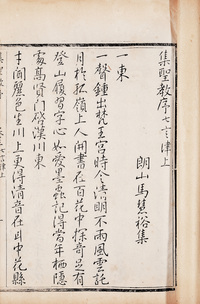 集聖教序七言律上
朗山馬慧裕集
一東
一聲鍾出梵王宮時今清朗不雨風雲託
月於孤嶺上人開書在百花中探奇足有
登山履習字心如愛墨蟲記得當年栖隱
處高賢門啓漢川東
半間麗色生川上更得清音在月中花縣